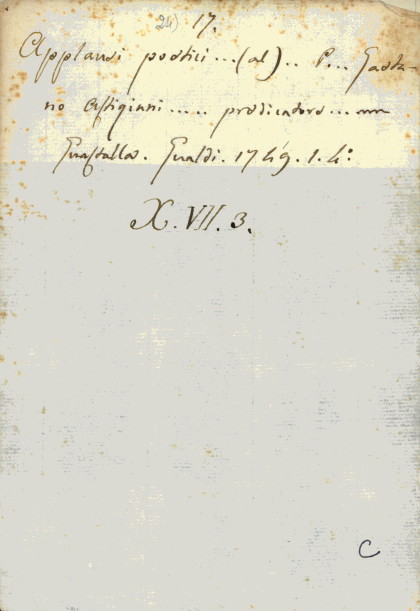 24) 17.
Applausi poetici ... (al) .. P ... Gaeta-
no Astiginni ..... predicatore ... in
Guastalla. Gualdi. 1749. 1. 4.°
X. VII. 3.
C